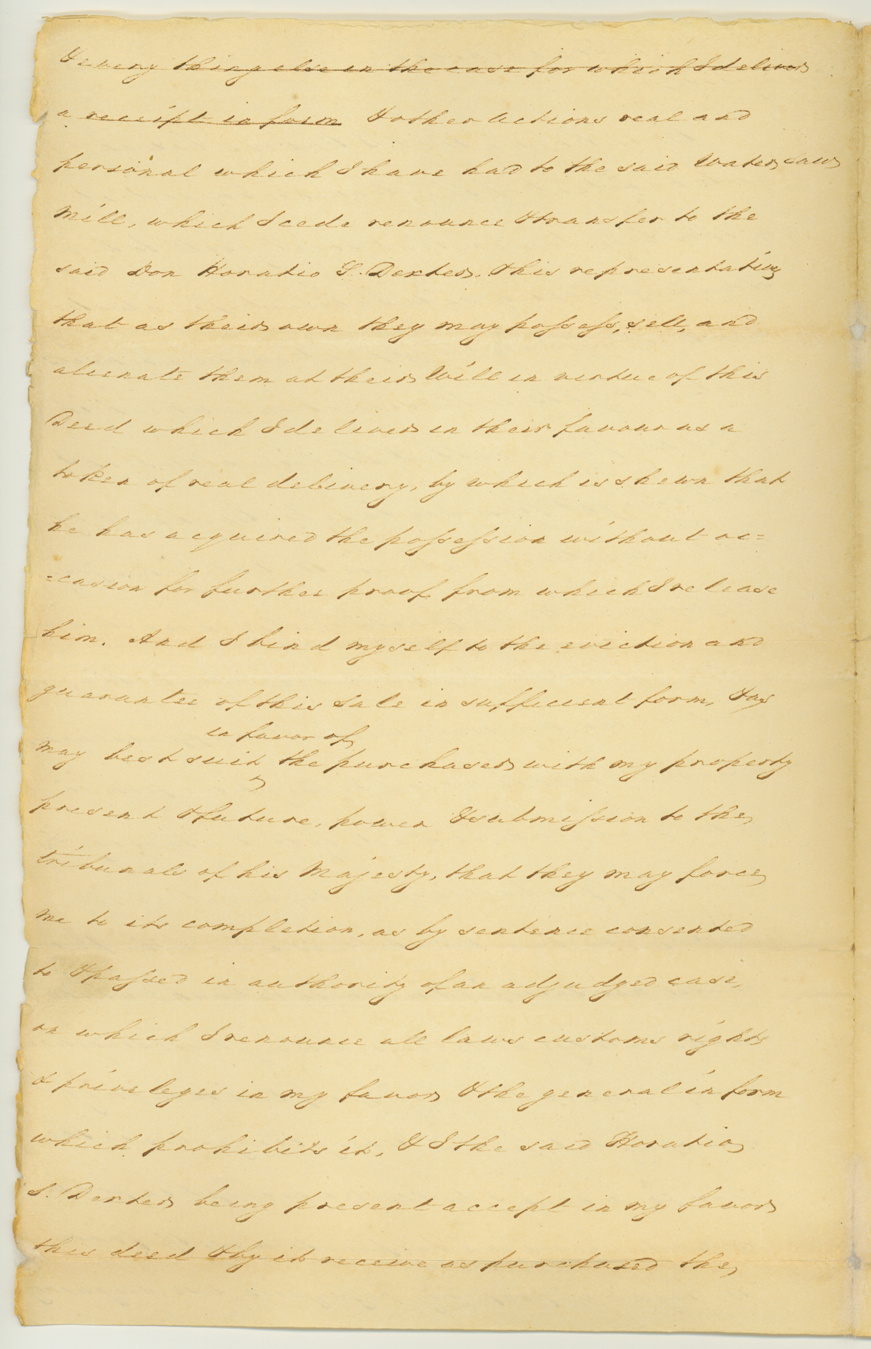 & every thing else in the case for which I deliver
a receipt in form & other actions real and
personal which I have had to the said Water saw
Mill, which I cede renounce & transfer to the
said Don Horatio S. Dexter, & his representating
that as their own they may possess, sell, and
alienate them at their Will in virtue of this
Deed which I deliver in their favour as a
token of real delivery, by which is shewn that
he has acquired the possession without oc=
=casion for further proof from which I release
him. And I bind myself to the eviction and
guarantee of this Sale in sufficient form, & as
in favor of
may best suit the purchaser with my property
present & future, power & submission to the
tribunals of his Majesty, that they may force
me to its completion, as by sentence consented
to & passed in authority of an adjudged case,
on which I renounce all laws customs rights
& priveleges in my favor & the general in form
which prohibits it, & I the said Horatio
S. Dexter being present accept in my favor
this deed & by it receive as purchased the